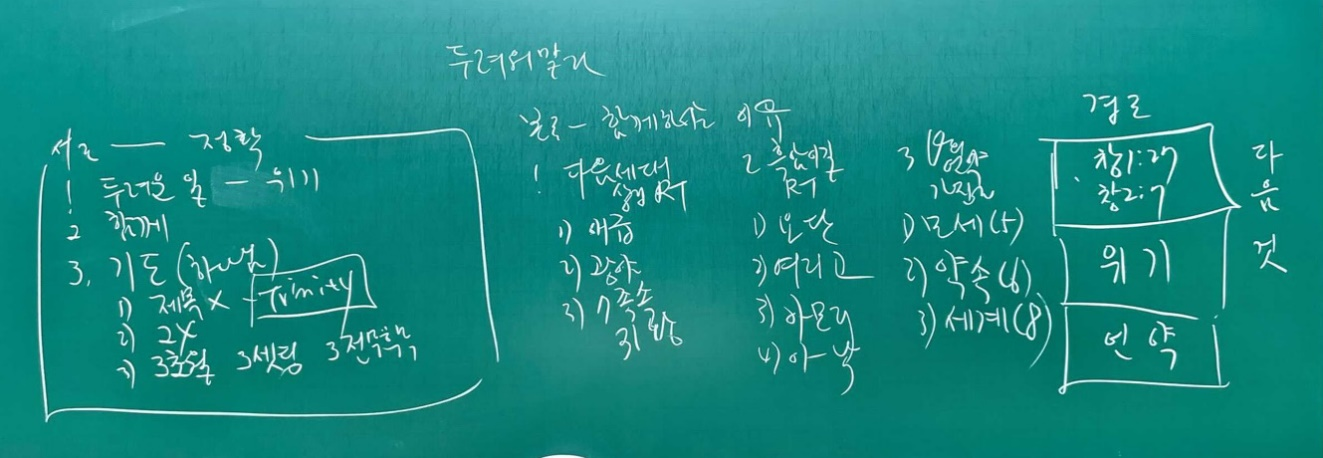 두려워말라
서론 — 정확
1 두려운 일 — 위기
2 함께
3. 기도 (하나님)
1) 제목 X - Trinity
2) 24
3) 3초월 3셋팅 3전무후무
본론 - 함께하시는 이유
1 다음세대
살릴 RT
1) 애굽
2) 광야
3) 7족속
31왕
2 흑암
RT
1) 요단
2) 여리고
3) 아모리
4) 아낙
3 언약
가진
1) 모세(5)
2) 약속(6)
3) 세계(8)
결론
창1:27
창2:7
위기
언약
다음 것